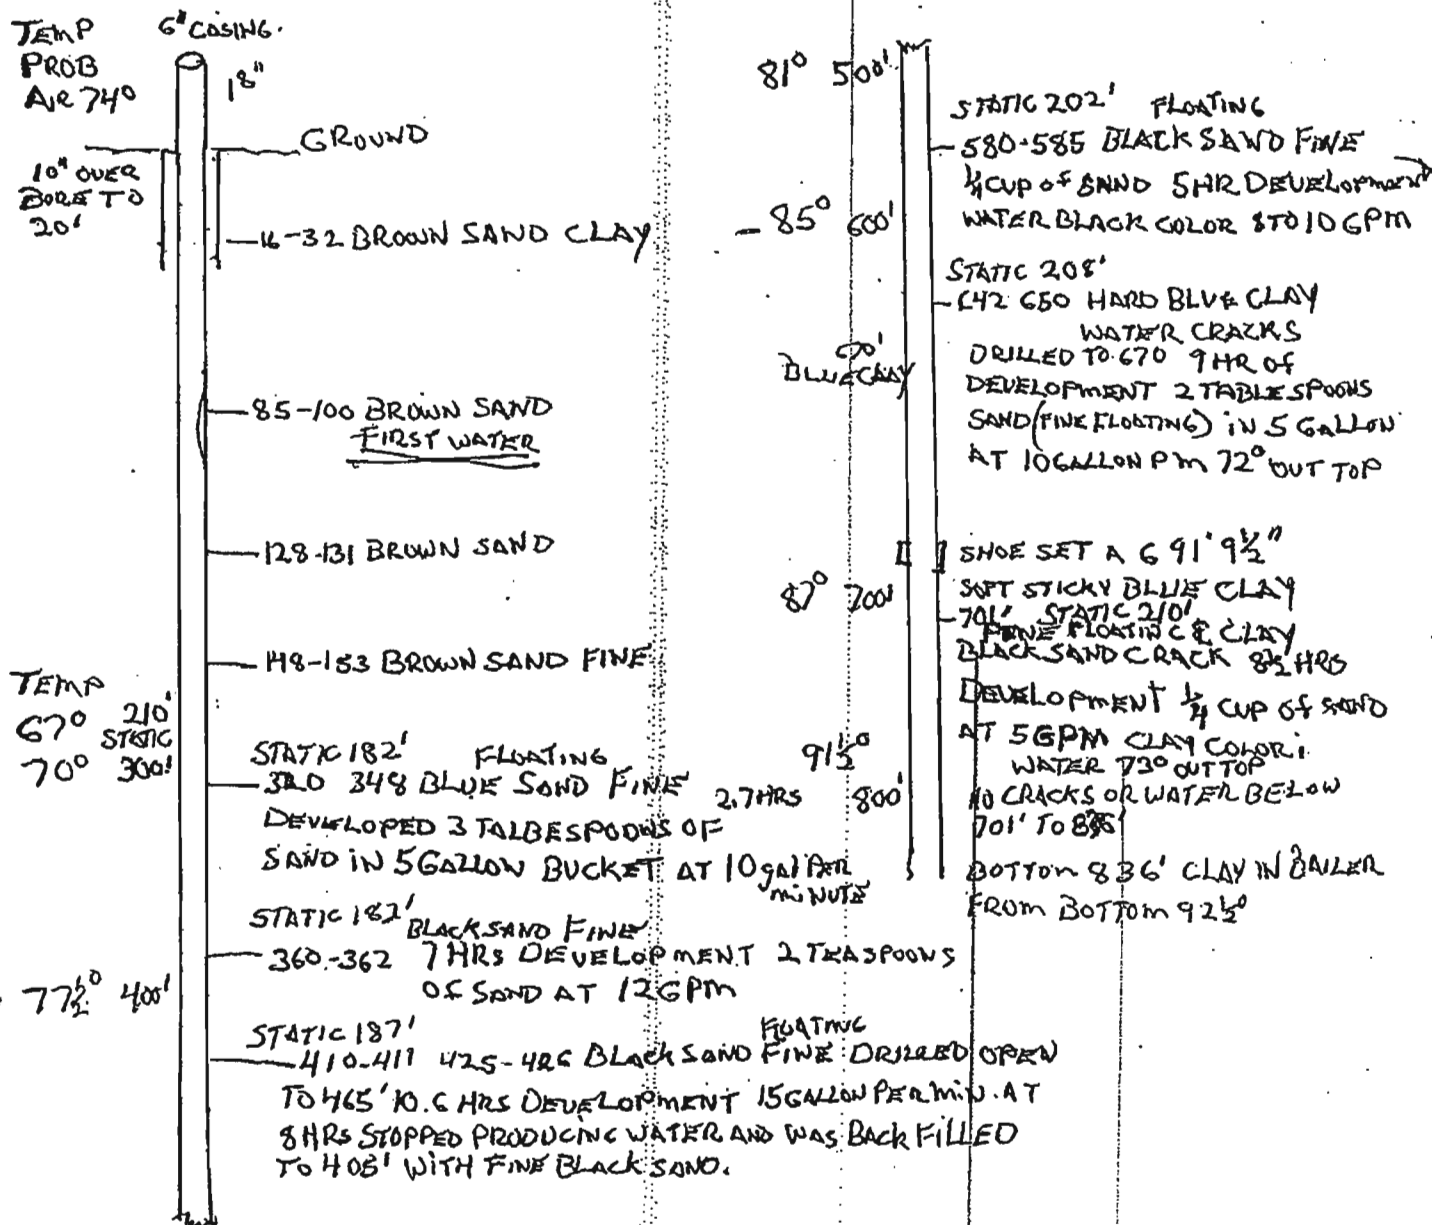 TEMP
PROB
AIR 74°
6" CASING.
18"
GROUND
10" OVER
BORE TO
20'
16-32 BROWN SAND CLAY
85-100 BROWN SAND
FIRST WATER
128-131 BROWN SAND
148-153 BROWN SAND FINE
TEMP
67° 210'
STATIC
70° 300'
STATIC 182' FLOATING
320 348 BLUE SAND FINE
DEVELOPED 3 TALBESPOONS OF
SAND IN 5 GALLON BUCKET AT 10 gal PER
MINUTE
STATIC 182' BLACK SAND FINE
360-362 7 HRS DEVELOPMENT 2 TEASPOONS
OF SAND AT 12 GPM
77½° 400'
STATIC 187' FLOATING
410-411 425-426 BLACK SAND FINE DRILLED OPEN
TO 465' 10.6 HRS DEVELOPMENT 15 GALLON PER MIN. AT
8 HRS STOPPED PRODUCING WATER AND WAS BACK FILLED
TO 405' WITH FINE BLACK SAND.
81° 500'
STATIC 202' FLOATING
580-585 BLACK SAND FINE
¼ CUP OF SAND 5 HR DEVELOPMENT
WATER BLACK COLOR 8 TO 10 GPM
85° 600'
STATIC 208'
642 650 HARD BLUE CLAY
WATER CRACKS
DRILLED TO 670 9 HR OF
DEVELOPMENT 2 TABLE SPOONS
SAND (FINE FLOATING) IN 5 GALLON
AT 10 GALLON PM 72° OUT TOP
BLUE CLAY
SHOE SET A 691' 9½"
87° 700'
SOFT STICKY BLUE CLAY
701' STATIC 210'
FINE FLOATING & CLAY
BLACK SAND CRACK 8½ HRS
DEVELOPMENT ¼ CUP OF SAND
AT 5 GPM CLAY COLOR
WATER 73° OUT TOP
91½°
2.7 HRS 800'
NO CRACKS OR WATER BELOW
701' TO 836'
BOTTOM 836' CLAY IN BAILER
FROM BOTTOM 92½°